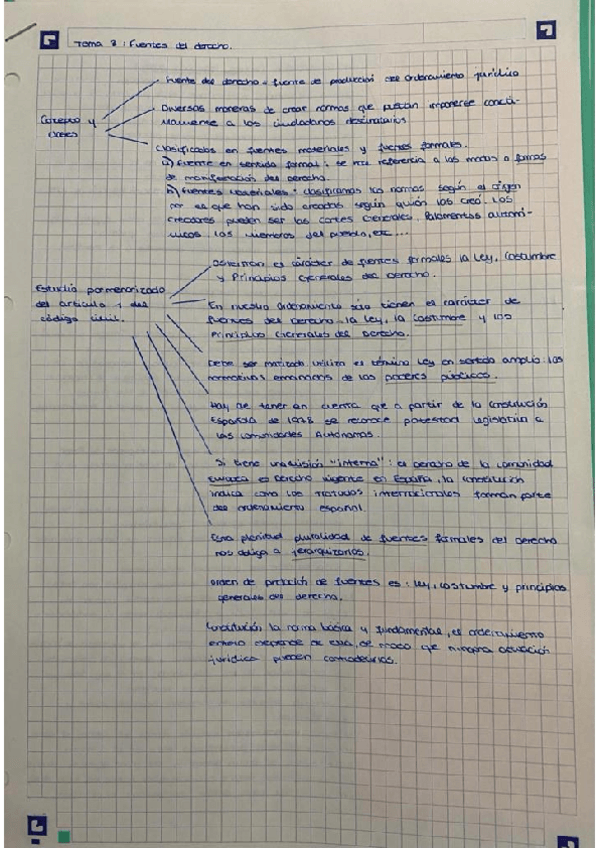 Tema 3: Fuentes del derecho.
Fuente del derecho = fuente de producción del ordenamiento jurídico
Concepto y
clases
Diversas maneras de crear normas que puedan imponerse
a los ciudadanos destinatarios
Clasificados en fuentes materiales y fuentes formales.
a) Fuente en sentido formal: se hace referencia a los modos o formas
de manifestación del derecho.
b) Fuentes materiales: clasificamos las normas según el origen
por el que han sido creadas según quién los creó. Los
creadores pueden ser las cortes Generales, Parlamentos autonó-
micos, los miembros del pueblo, etc...
Estudio pormenorizado
del artículo 1 del
código civil.
el carácter de fuentes formales la Ley, Costumbre
y Principios Generales del Derecho.
En nuestro ordenamiento solo tienen el carácter de
fuentes del Derecho la Ley, la Costumbre y los
Principios Generales del Derecho.
Debe ser matizado utiliza el término Ley en sentido amplio: las
normativas emanadas de los poderes públicos.
Hay que tener en cuenta que a partir de la Constitución
Española de 1978 se reconoce potestad legislativa a
las comunidades Autónomas.
Si tiene una visión "interna": el derecho de la comunidad
europea es derecho vigente en España, la constitución
indica como los Tratados internacionales forman parte
del ordenamiento español.
Esta pluralidad de fuentes formales del Derecho
nos obliga a jerarquizarlos.
Orden de prelación de fuentes es: ley, costumbre y principios
generales del derecho.
Constitución la norma básica y fundamental, el ordenamiento
entero depende de ella, de modo que ninguna
jurídica pueden contradecirlos.